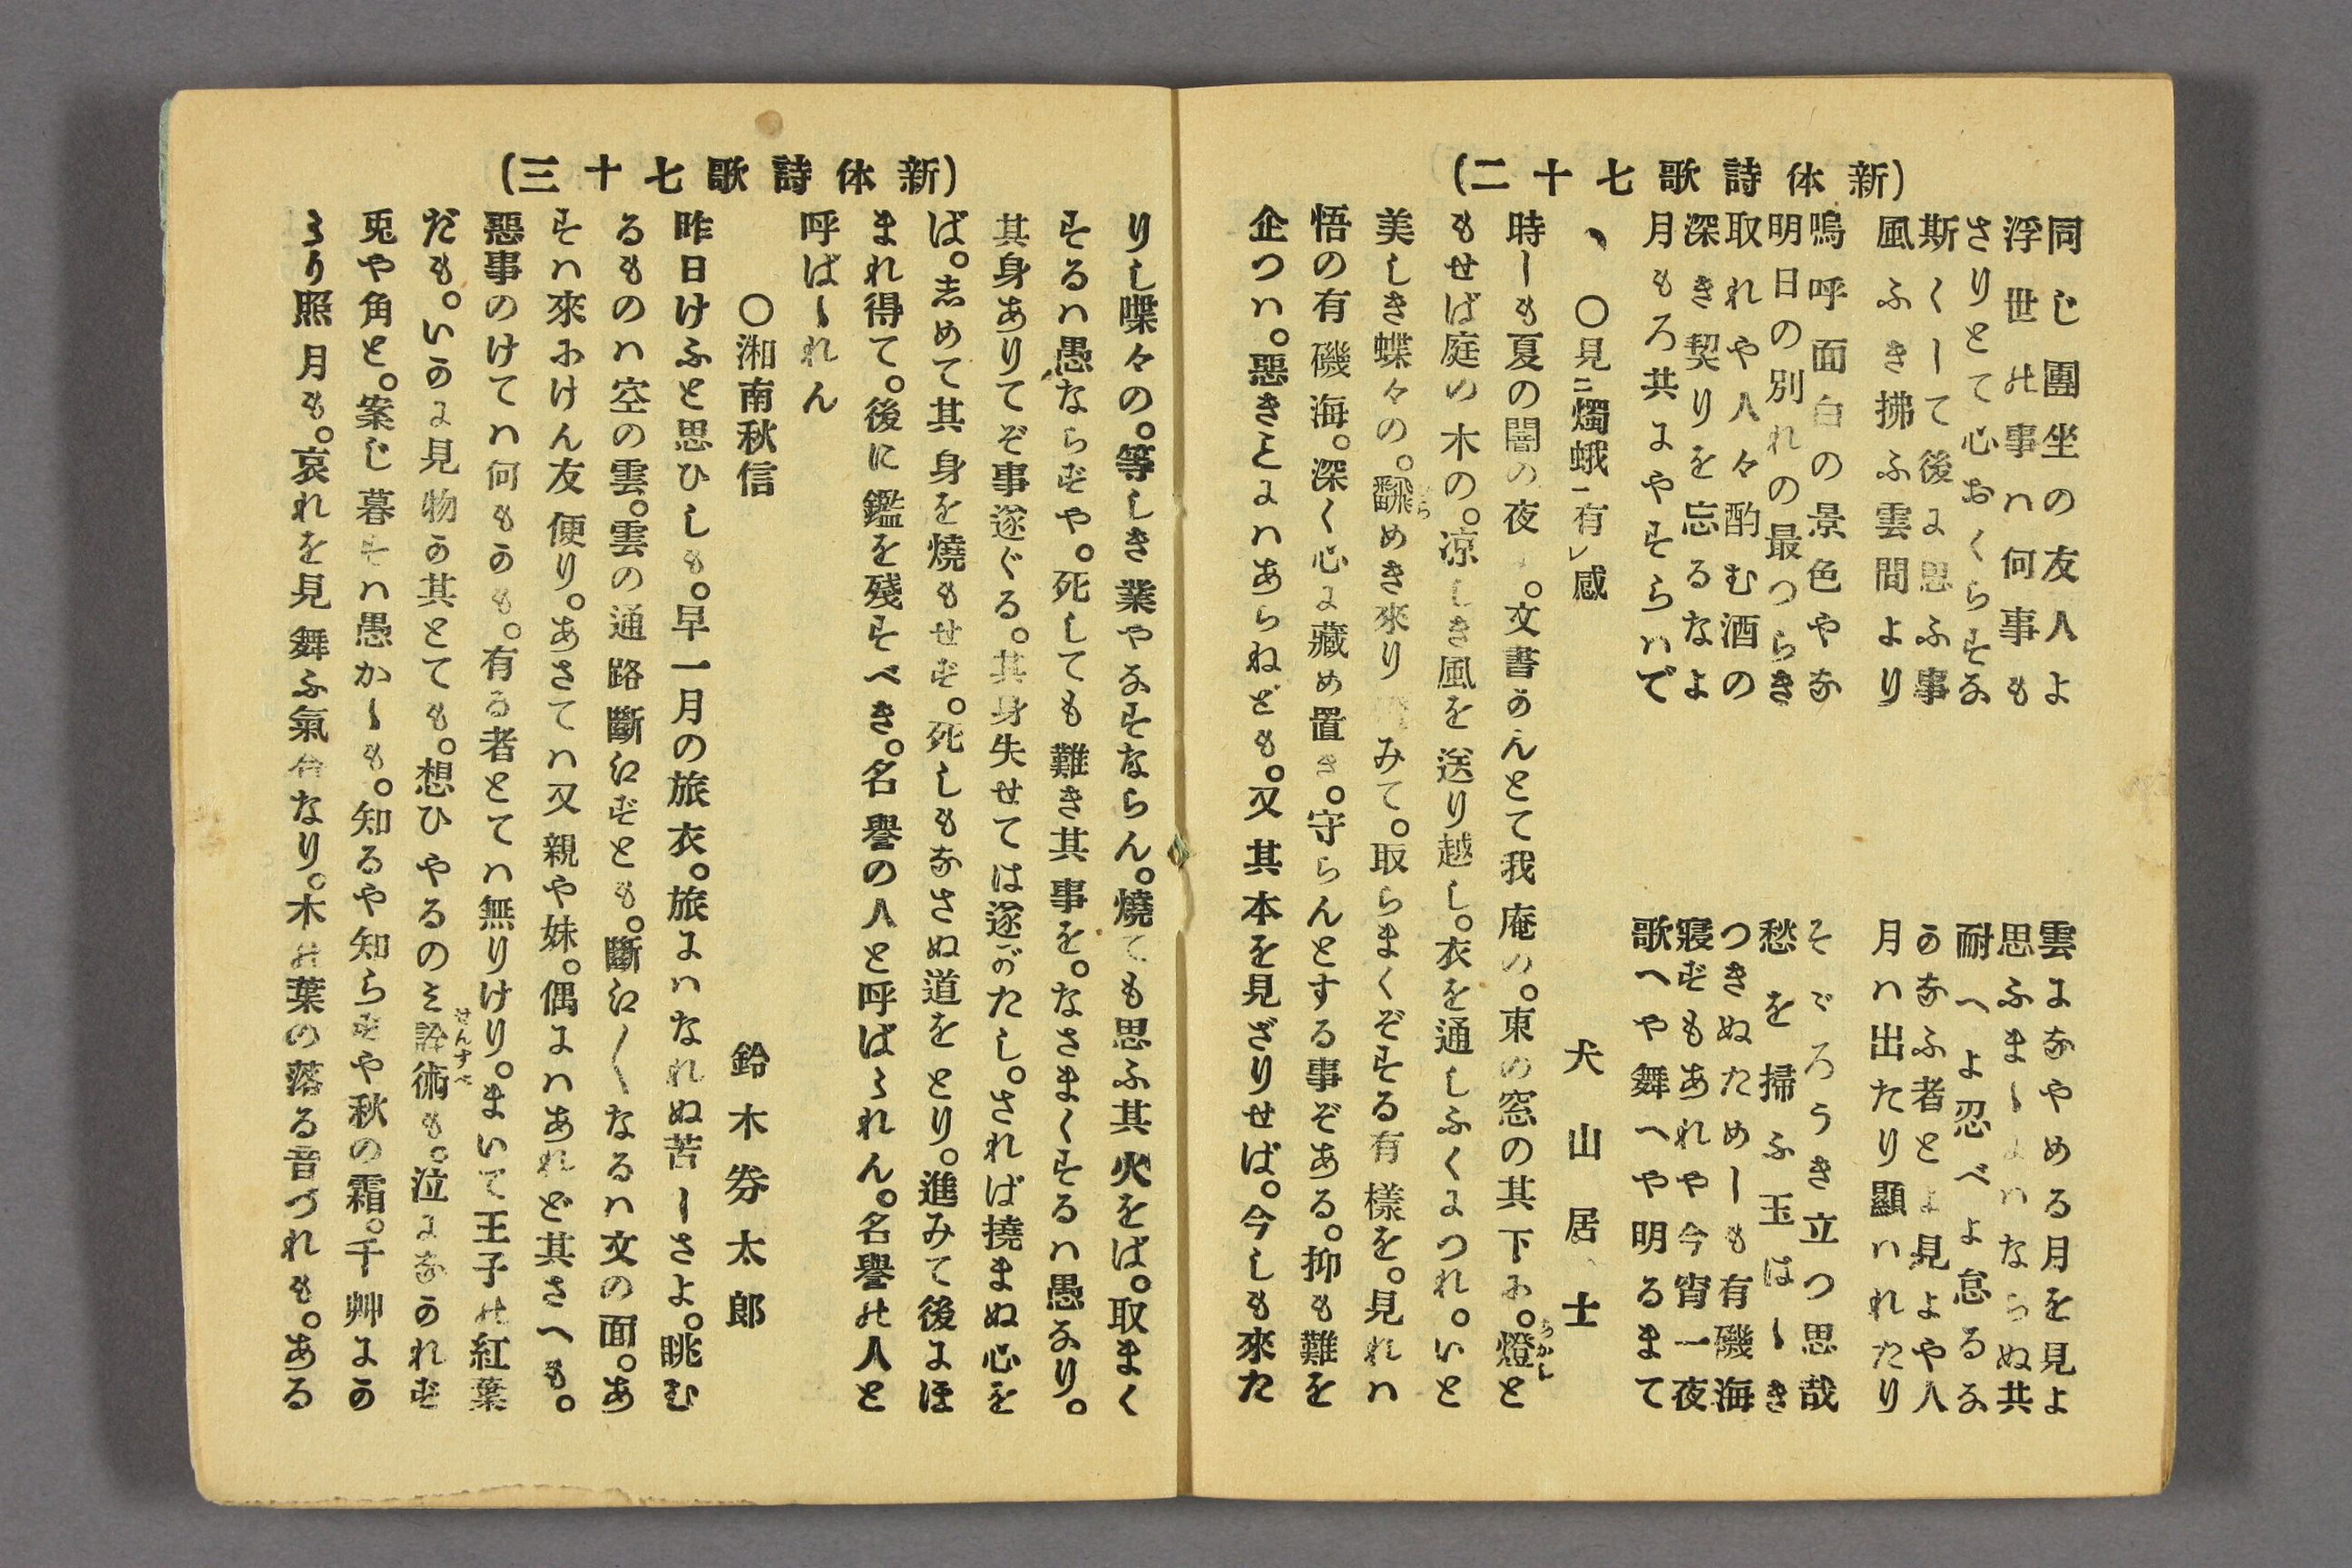 (新体詩歌七十二)
同じ團坐の友人よ
雲よなやめる月を見よ
浮世の事は何事も
思ふまじよはならぬ共
さりとて心おくらすな
耐へよ忍べよ怠るな
斯くして後に思ふ事
かなふ者とよ見よや人
風ふき拂ふ雲間より
月は出たり顯はれたり
嗚呼面白の景色やな
そゞろうき立つ思哉
明日の別れの最つらき
愁を掃ふ玉はゝき
取れや人々酌む酒の
つきぬためしも有磯海
深き契りを忘るなよ
寢ずもあれや今宵一夜
月もろ共にやすらはで
歌へや舞へや明るまて
○見二燭蛾一有レ感
犬山居士
時しも夏の闇の夜。文書かんとて我庵の。東の窓の其下に。燈と
もせば庭の木の。凉しき風を送り越し。衣を通しふくにつれ。いと
美しき蝶々の。飜めき來りみて。取らまくぞする有樣を。見れは
悟の有磯海。深く心に藏め置き。守らんとする事ぞある。抑も難を
企つは。惡きとにはあらねども。又其本を見ざりせば。今しも來た
(新体詩歌七十三)
りし喋々の。等しき業やなすならん。燒ても思ふ其火をば。取まく
するは愚ならずや。死しても難き其事を。なさまくするは愚なり。
其身ありてぞ事遂ぐる。其身失せては遂がたし。されば撓まぬ心を
ば。志めて其身を燒もせず。死しもなさぬ道をとり。進みて後にほ
まれ得て。後に鑑を殘すべき。名譽の人と呼ばられん。名譽の人と
呼ばゝれん
○湘南秋信
鈴木券太郎
昨日けふと思ひしも。早一月の旅衣。旅にはなれぬ苦しさよ。眺む
るものは空の雲。雲の通路斷えずとも。斷え〱なるは文の面。あ
すは來にけん友便り。あさては又親や妹。偶にはあれど其さへも。
惡事のけては何ものも。有る者とては無りけり。まいて王子の紅葉
だも。いかに見物か其とても。想ひやるのミ詮術も。泣になかれず
兎や角と。案じ暮すは愚かしも。知るや知らずや秋の霜。千艸にか
らり照月も。哀れを見舞ふ氣合なり。木の葉の落る音づれも。ある